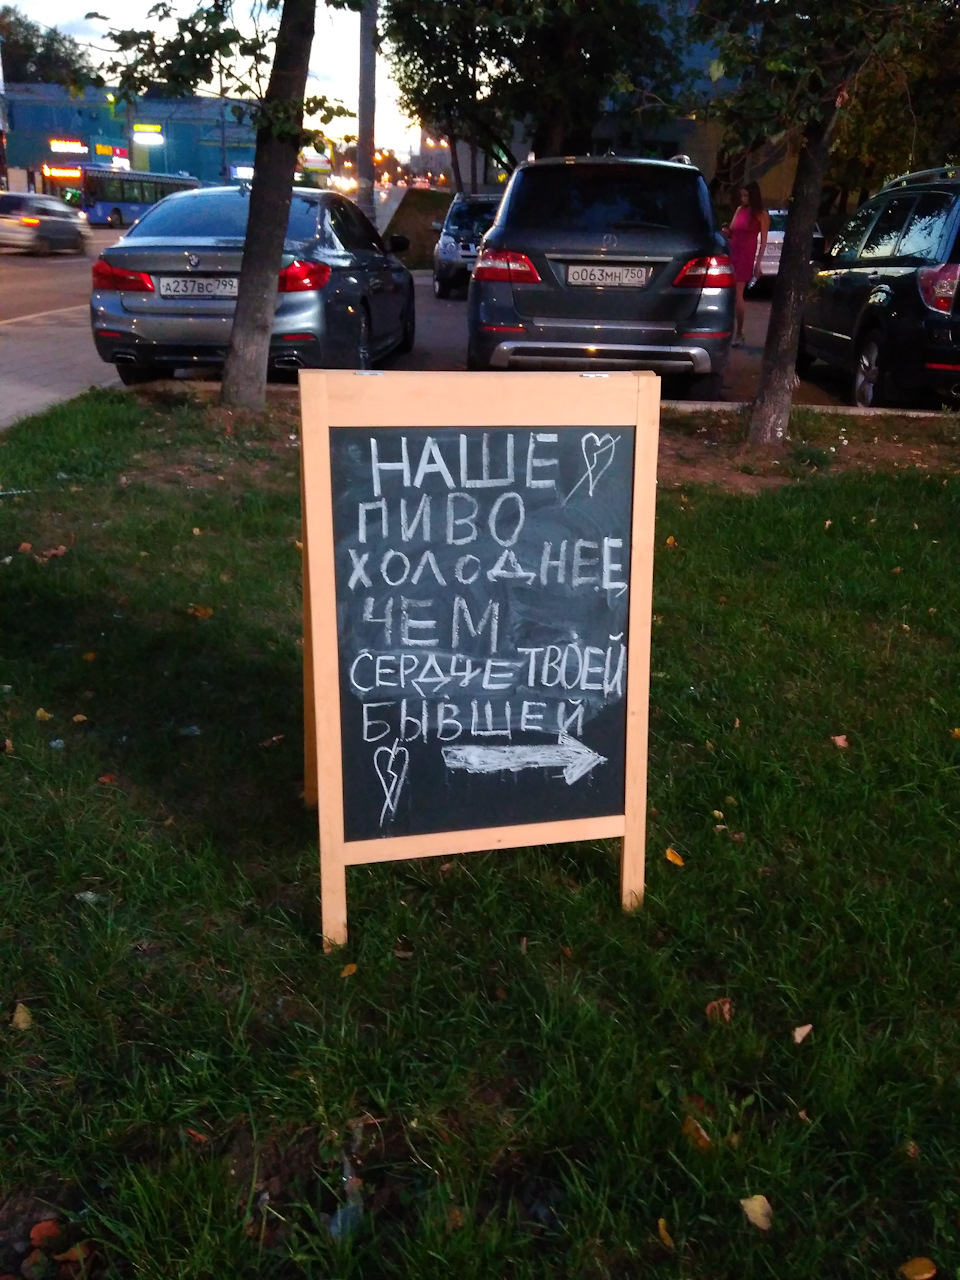 НАШЕ
ПИВО
ХОЛОДНЕЕ
ЧЕМ
СЕРДЦЕ ТВОЕЙ
БЫВШЕЙ
А237ВС 799
О063МН 750